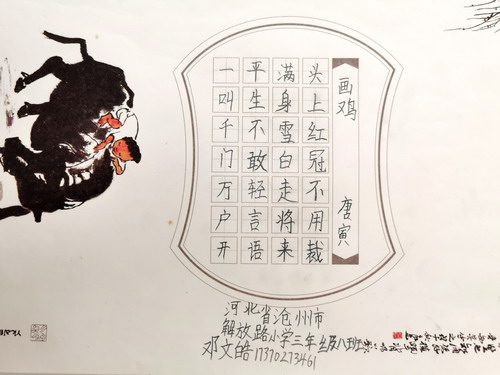 画鸡
唐寅
头上红冠不用裁
满身雪白走将来
平生不敢轻言语
一叫千门万户开
河北省沧州市
解放路小学三年级八班
邓文皓17370273461